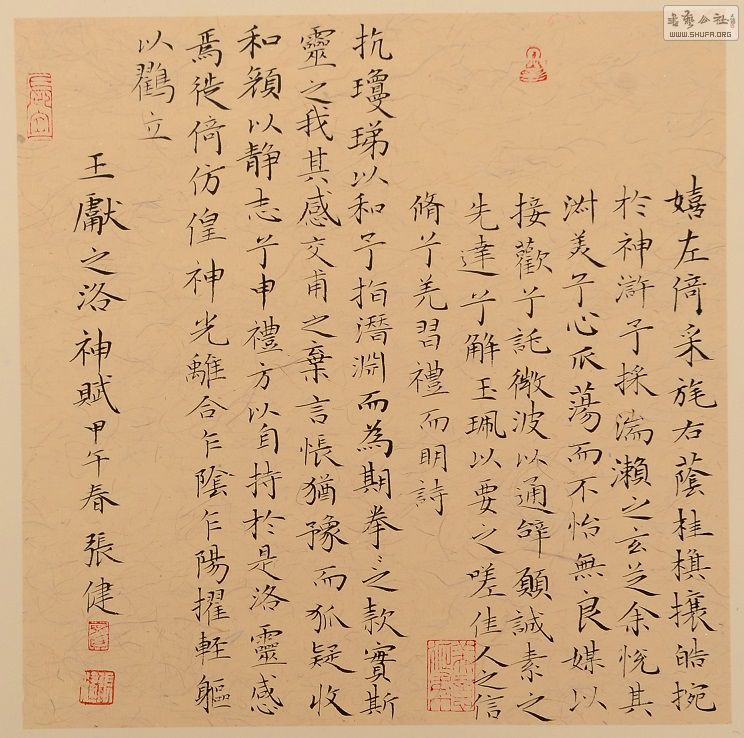 嬉左倚采旄右蔭桂旗攘皓捥
於神滸兮採湍瀨之玄芝余悅其
淑美兮心爪蕩而不怡無良媒以
接歡兮託微波以通辭願誠素之
先達兮解玉珮以要之嗟佳人之信
脩兮羌習禮而明詩
抗瓊珶以和予指潛淵而為期拳〻之款實斯
靈之我其感交甫之棄言悵猶豫而狐疑收
和顏以靜志兮申禮防以自持於是洛靈感
焉徙倚仿偟神光離合乍陰乍陽擢輕軀
以鸖立
王獻之洛神賦甲午春張健
書藝公社
WWW.SHUFA.ORG